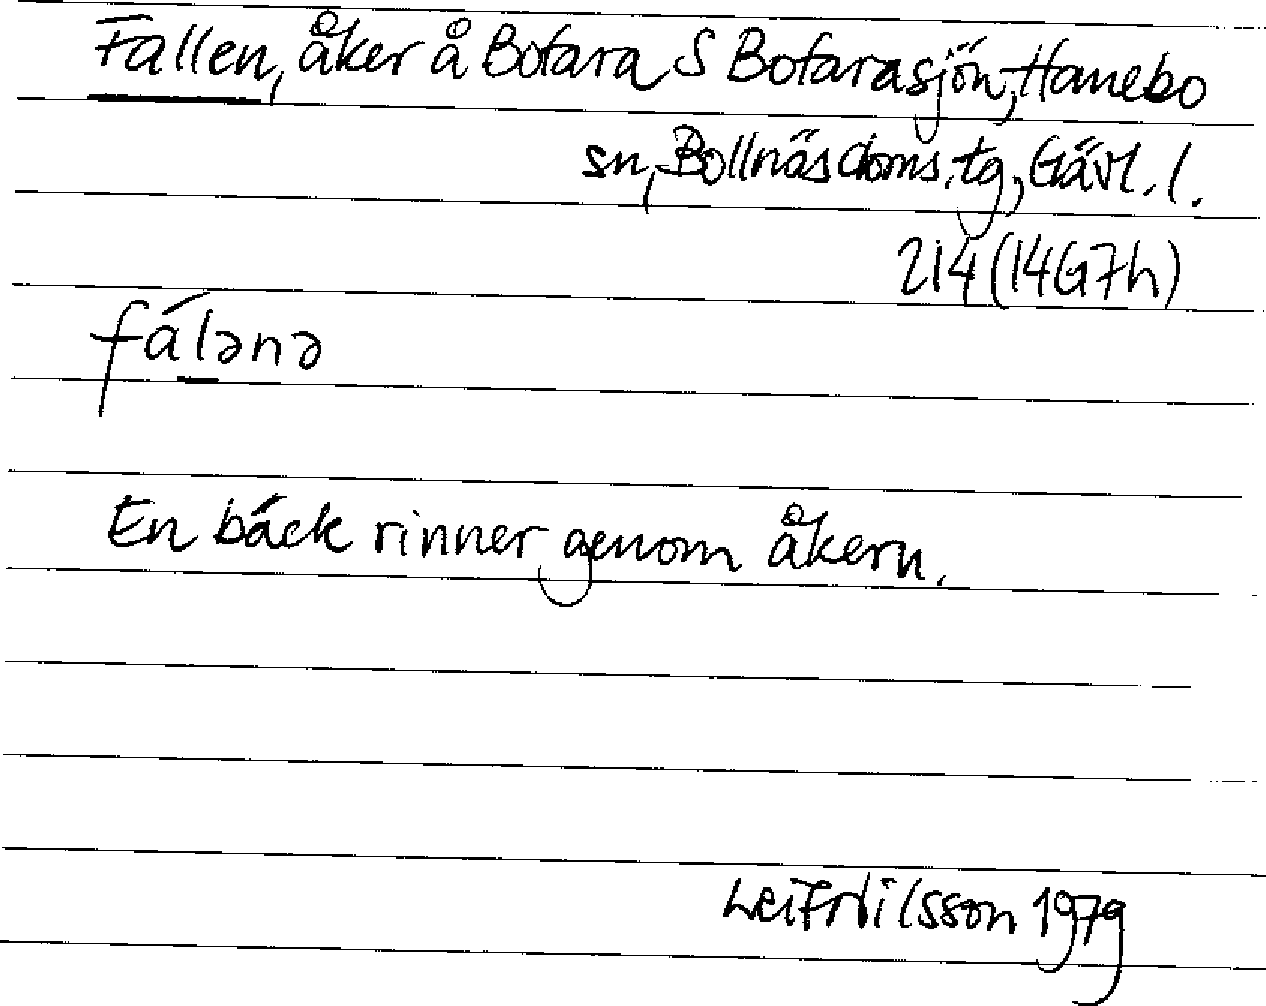 Fallen, åker å Bofara S Bofarasjön, Hanebo
sn, Bollnäs doms. tg, Gävl. l.
214 (14G7h)
fálənə
En bäck rinner genom åkern.
Leif Nilsson 1979